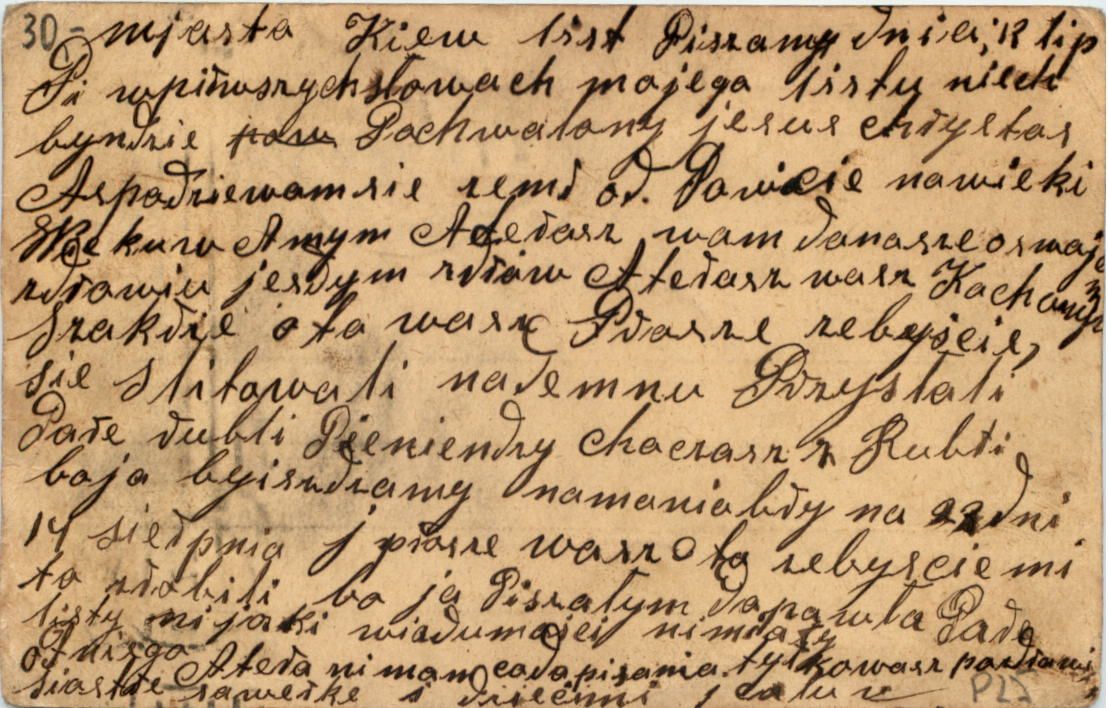 30 - mjasta Kiew list Piszamy dnia, 12 lip
Pi wpirwszych słowach mojego listu niech
byndzie Pochwalony jesus chrystos
Aspodziewam sie zemi od. Powicie nawieki
Wiekuw Amym A teras wam donasze o swojo
zdrowiu jesdym zdrow A teras was Kochany
Szakdre oto wasz Prosze zebyscie,
sie slitowali nademnu Przystali
Pare rubli Pieniendzy choczasz 2 Rubli
boja byiszdzamy namaniabry na 22 dni
14 sierpnia j prosze wasz oto zebyscie mi
to zrobili bo ja Piszatym do pawla Pare
listy nijaki wiadumosci nimialy
otniego A tera ni mam co do pisania. tylko wasz pozdrawi
siostre saweike i dziecmi j calu
P25